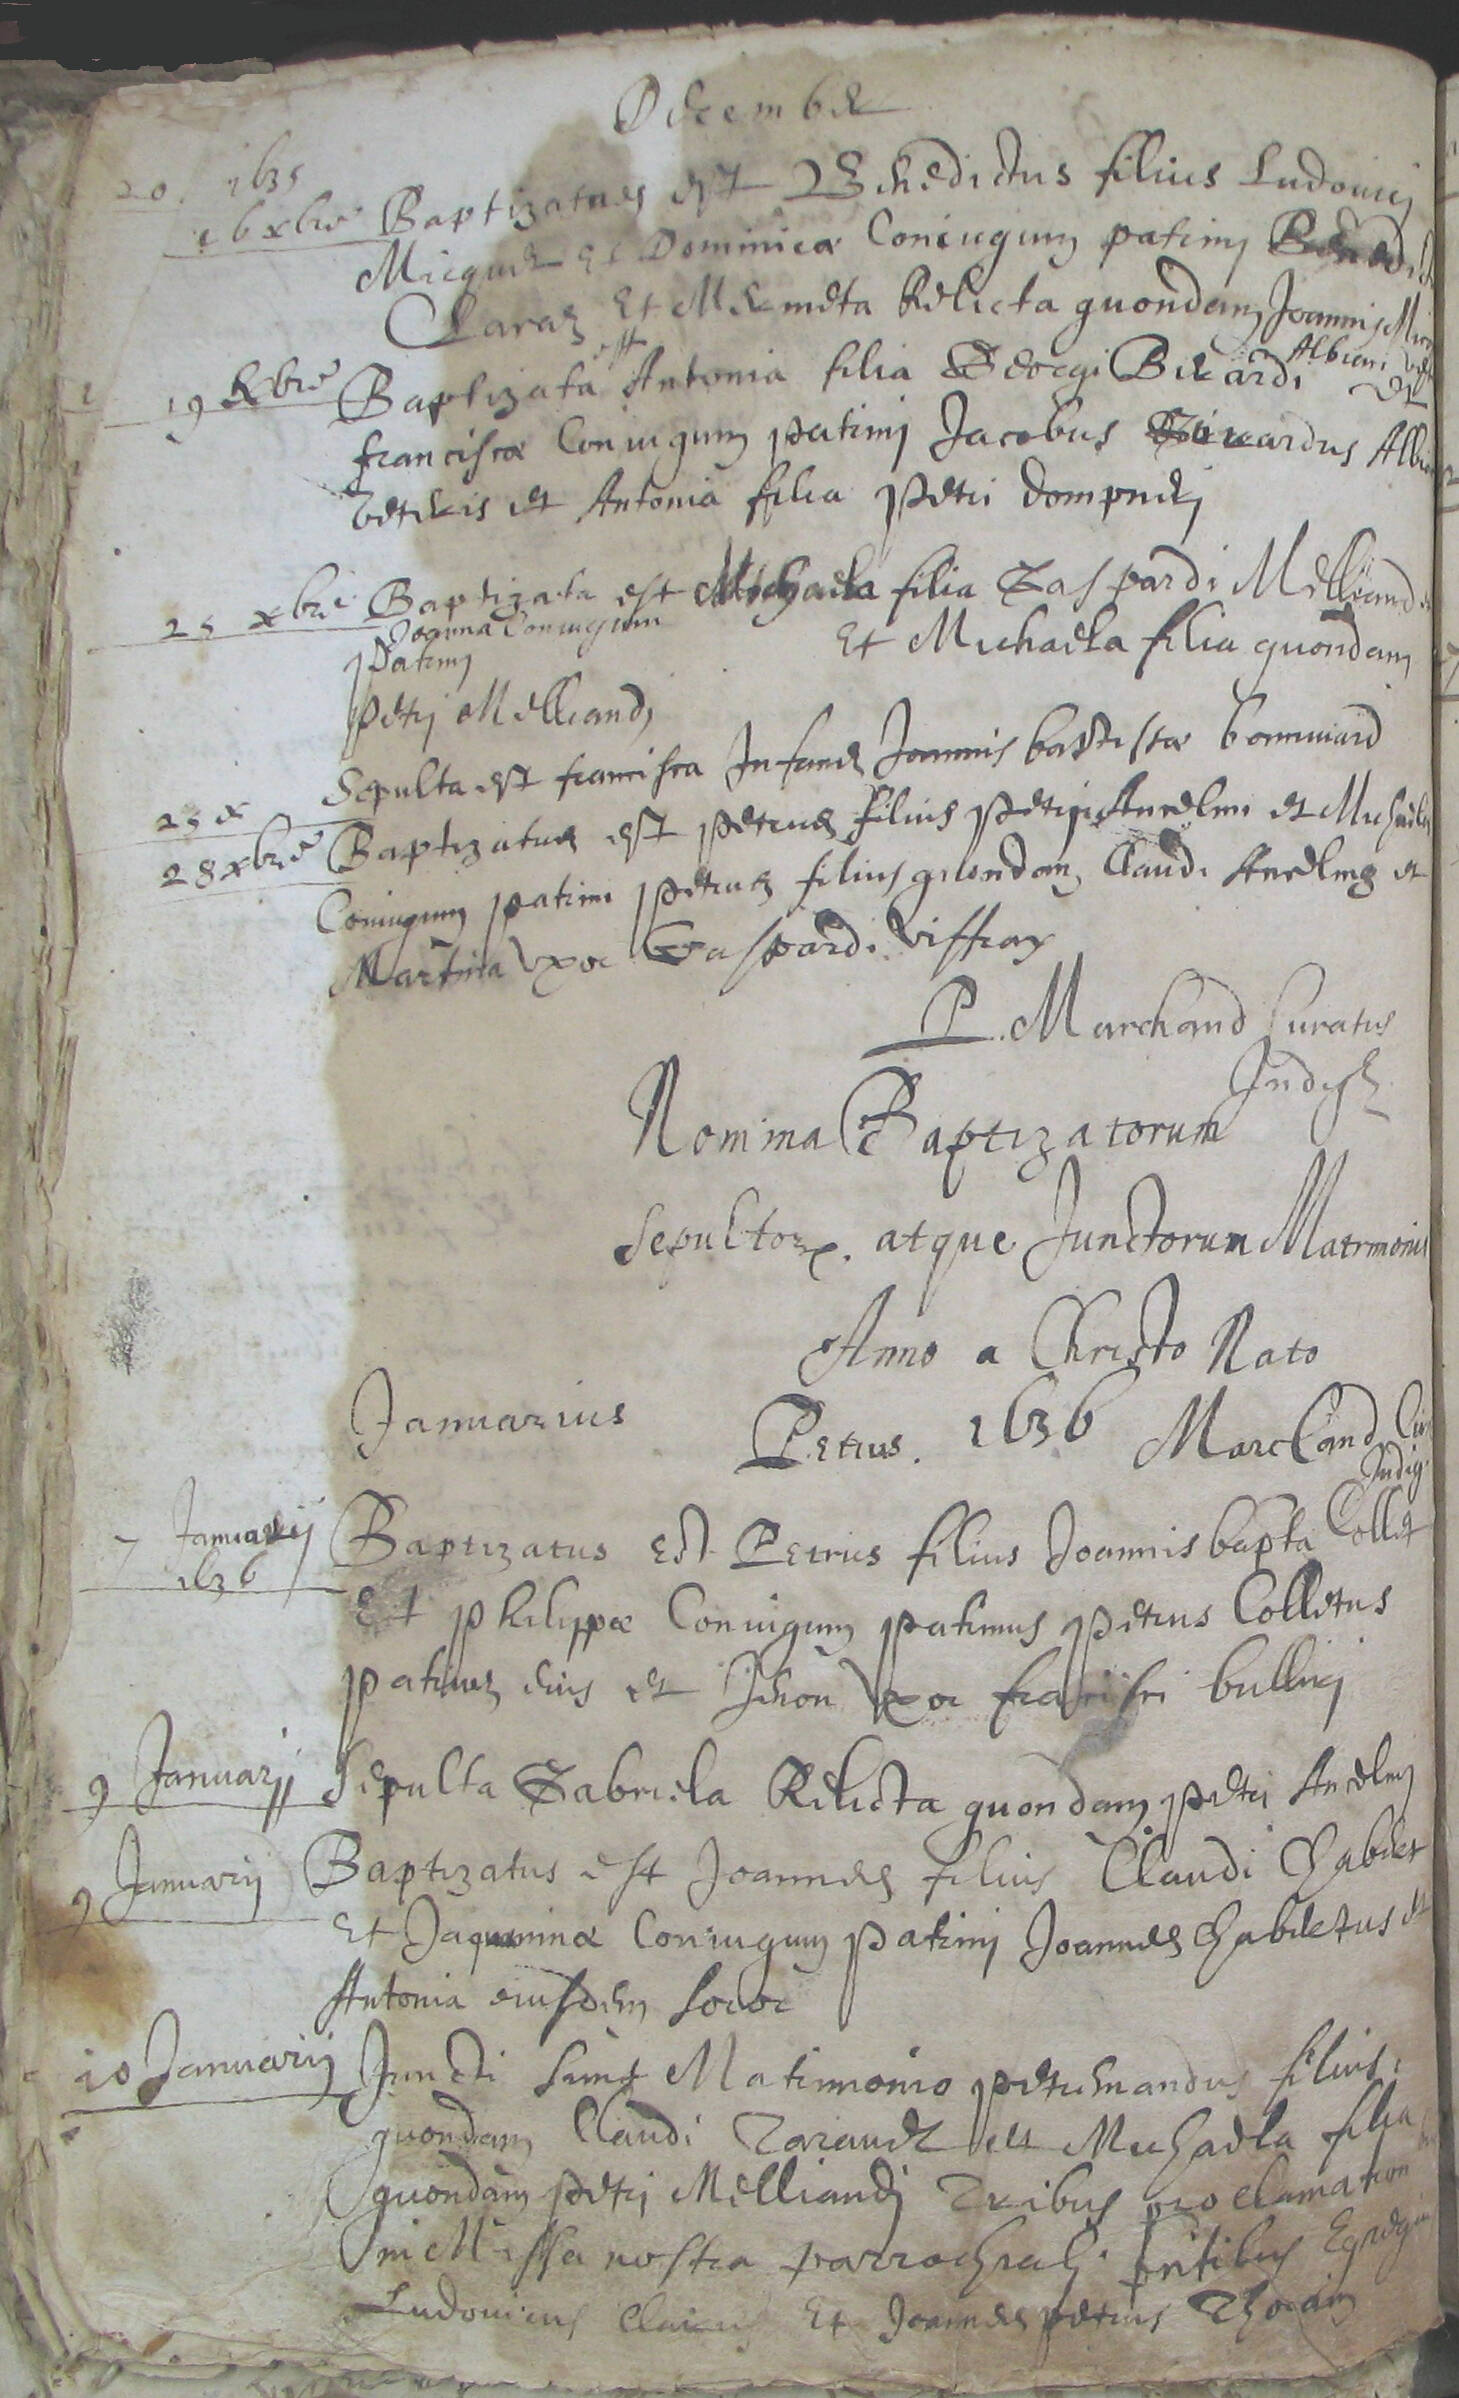 December
20. 1635
16 xbre Baptizatus est Benedictus filius Ludovici
Micquet et Dominicæ Coniugum patrini Benedictus
Claraz Et Mermeta Relicta quondam Joannis
19 Xbre Baptizata est Antonia filia Georgi Birardi Albieni
franciscæ Coniugum patrini Jacobus Birardus
veteris et Antonia filia Petri
25 xbre Baptizata est Michaela filia Gaspardi Melliand
Joanna Coniugum
Patrini Et Michaela filia quondam
Petrj Melliandj
25 x Sepulta est francisca Infans Joannis baptistæ
28 xbre Baptizatus est Petrus filius Petrj Anselmi et Michaela
Coniugum patrini Petrus filius quondam Claudi Anselmy et
Martina Uxor Gaspardi Viffray
P. Marchand Curatus
Indigs
Nomina Baptizatorum
Sepultor. atque Junctorum Matrimonis
Anno a Christo Nato
Januarius Petrus. 1636 Marchand Cur
Indig.
7 Januarij Baptizatus est Petrus filius Joannis bapta Collet
1636
Et philippæ Coniugum patrinus Petrus Colletus
patruus eius et Uxor francisci
9 Januarij Sepulta Gabriela Relicta quondam Petri Anselmj
9 Januarij Baptizatus est Joannes filius Claudi Chabert
Et Jaqueminæ Coniugum Patrini Joannes Chabertus et
Antonia eiusdem soror
20 Januarij Juncti sunt Matrimonio filius
quondam Claudi et Michaela filia
quondam Petrj Melliandj Tribus proclamation
in Missa nostra parrochiali pntibus Egregiis
Ludovicus Et Joannes Petrus